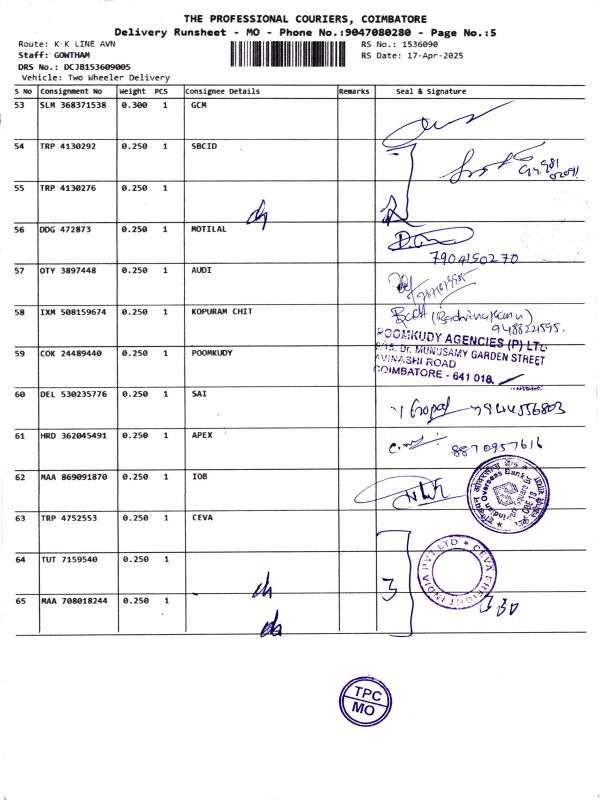 THE PROFESSIONAL COURIERS, COIMBATORE
Delivery Runsheet - MO - Phone No.:9047080280 - Page No.:5
Route: K·K LINE AVN
RS No.: 1536090
Staff: GOWTHAM
RS Date: 17-Apr-2025
DRS No.: DCJB153609005
Vehicle: Two Wheeler Delivery
S No Consignment No Weight PCS Consignee Details Remarks Seal & Signature
53 SLM 368371538 0.300 1 GCM
54 TRP 4130292 0.250 1 SBCID
55 TRP 4130276 0.250 1
56 DDG 472873 0.250 1 MOTILAL
7904150270
57 OTY 3897448 0.250 1 AUDI
58 IXM 508159674 0.250 1 KOPURAM CHIT
9488221595.
POOMKUDY AGENCIES (P) LTD
59 COK 24489440 0.250 1 POOMKUDY
Dr. MUNUSAMY GARDEN STREET
AVINASHI ROAD
COIMBATORE - 641 018.
60 DEL 530235776 0.250 1 SAI
Gopal 9844556803
61 HRD 362045491 0.250 1 APEX
8870957616
62 MAA 869091870 0.250 1 IOB
Overseas Bank
63 TRP 4752553 0.250 1 CEVA
CEVA FREIGHT INDIA PVT LTD
64 TUT 7159540 0.250 1
3
65 MAA 708018244 0.250 1
TPC
MO